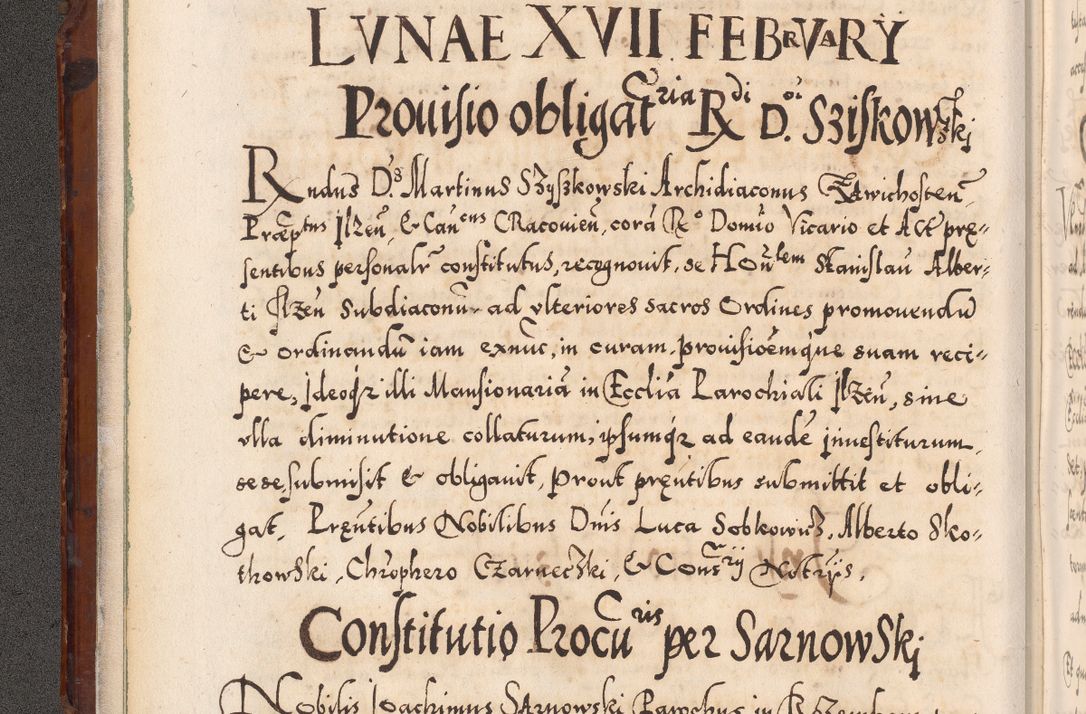 LVNAE XVII FEBRVARY
Prouisio obligatria Rdi D. Sziskowski
Rndus Ds Martinus Szyszkowski Archidiaconus Zawichosten,
Præptus Ilzen, & Cancus CRacouien, corā Ro Domio Vicario et Act prę-
sentibus personalr constitutus, recognouit, se Honlem Stanislau Alber-
ti Ilzen Subdiaconū ad vlteriores sacros Ordines promouendū
& ordinandū iam exnūc, in curam prouisioēmque suam reci-
pere, Ideoqz illi Mansionariā in Ecclia Parochiali Ilzen, sine
vlla diminutione collaturum, ipsumqz ad eandē inuestiturum
sese submisit & obligauit, Prout pręntibus submittit et obli-
gat, Pręntibus Nobilibus Dnis Luca Sobkowicz, Alberto Sko-
thowski, Chrophero Czarnecki, & Consrij Notrijs.
Constitutio Procuris per Sarnowski
Nobilis Joachimus SArnowski Parochus in